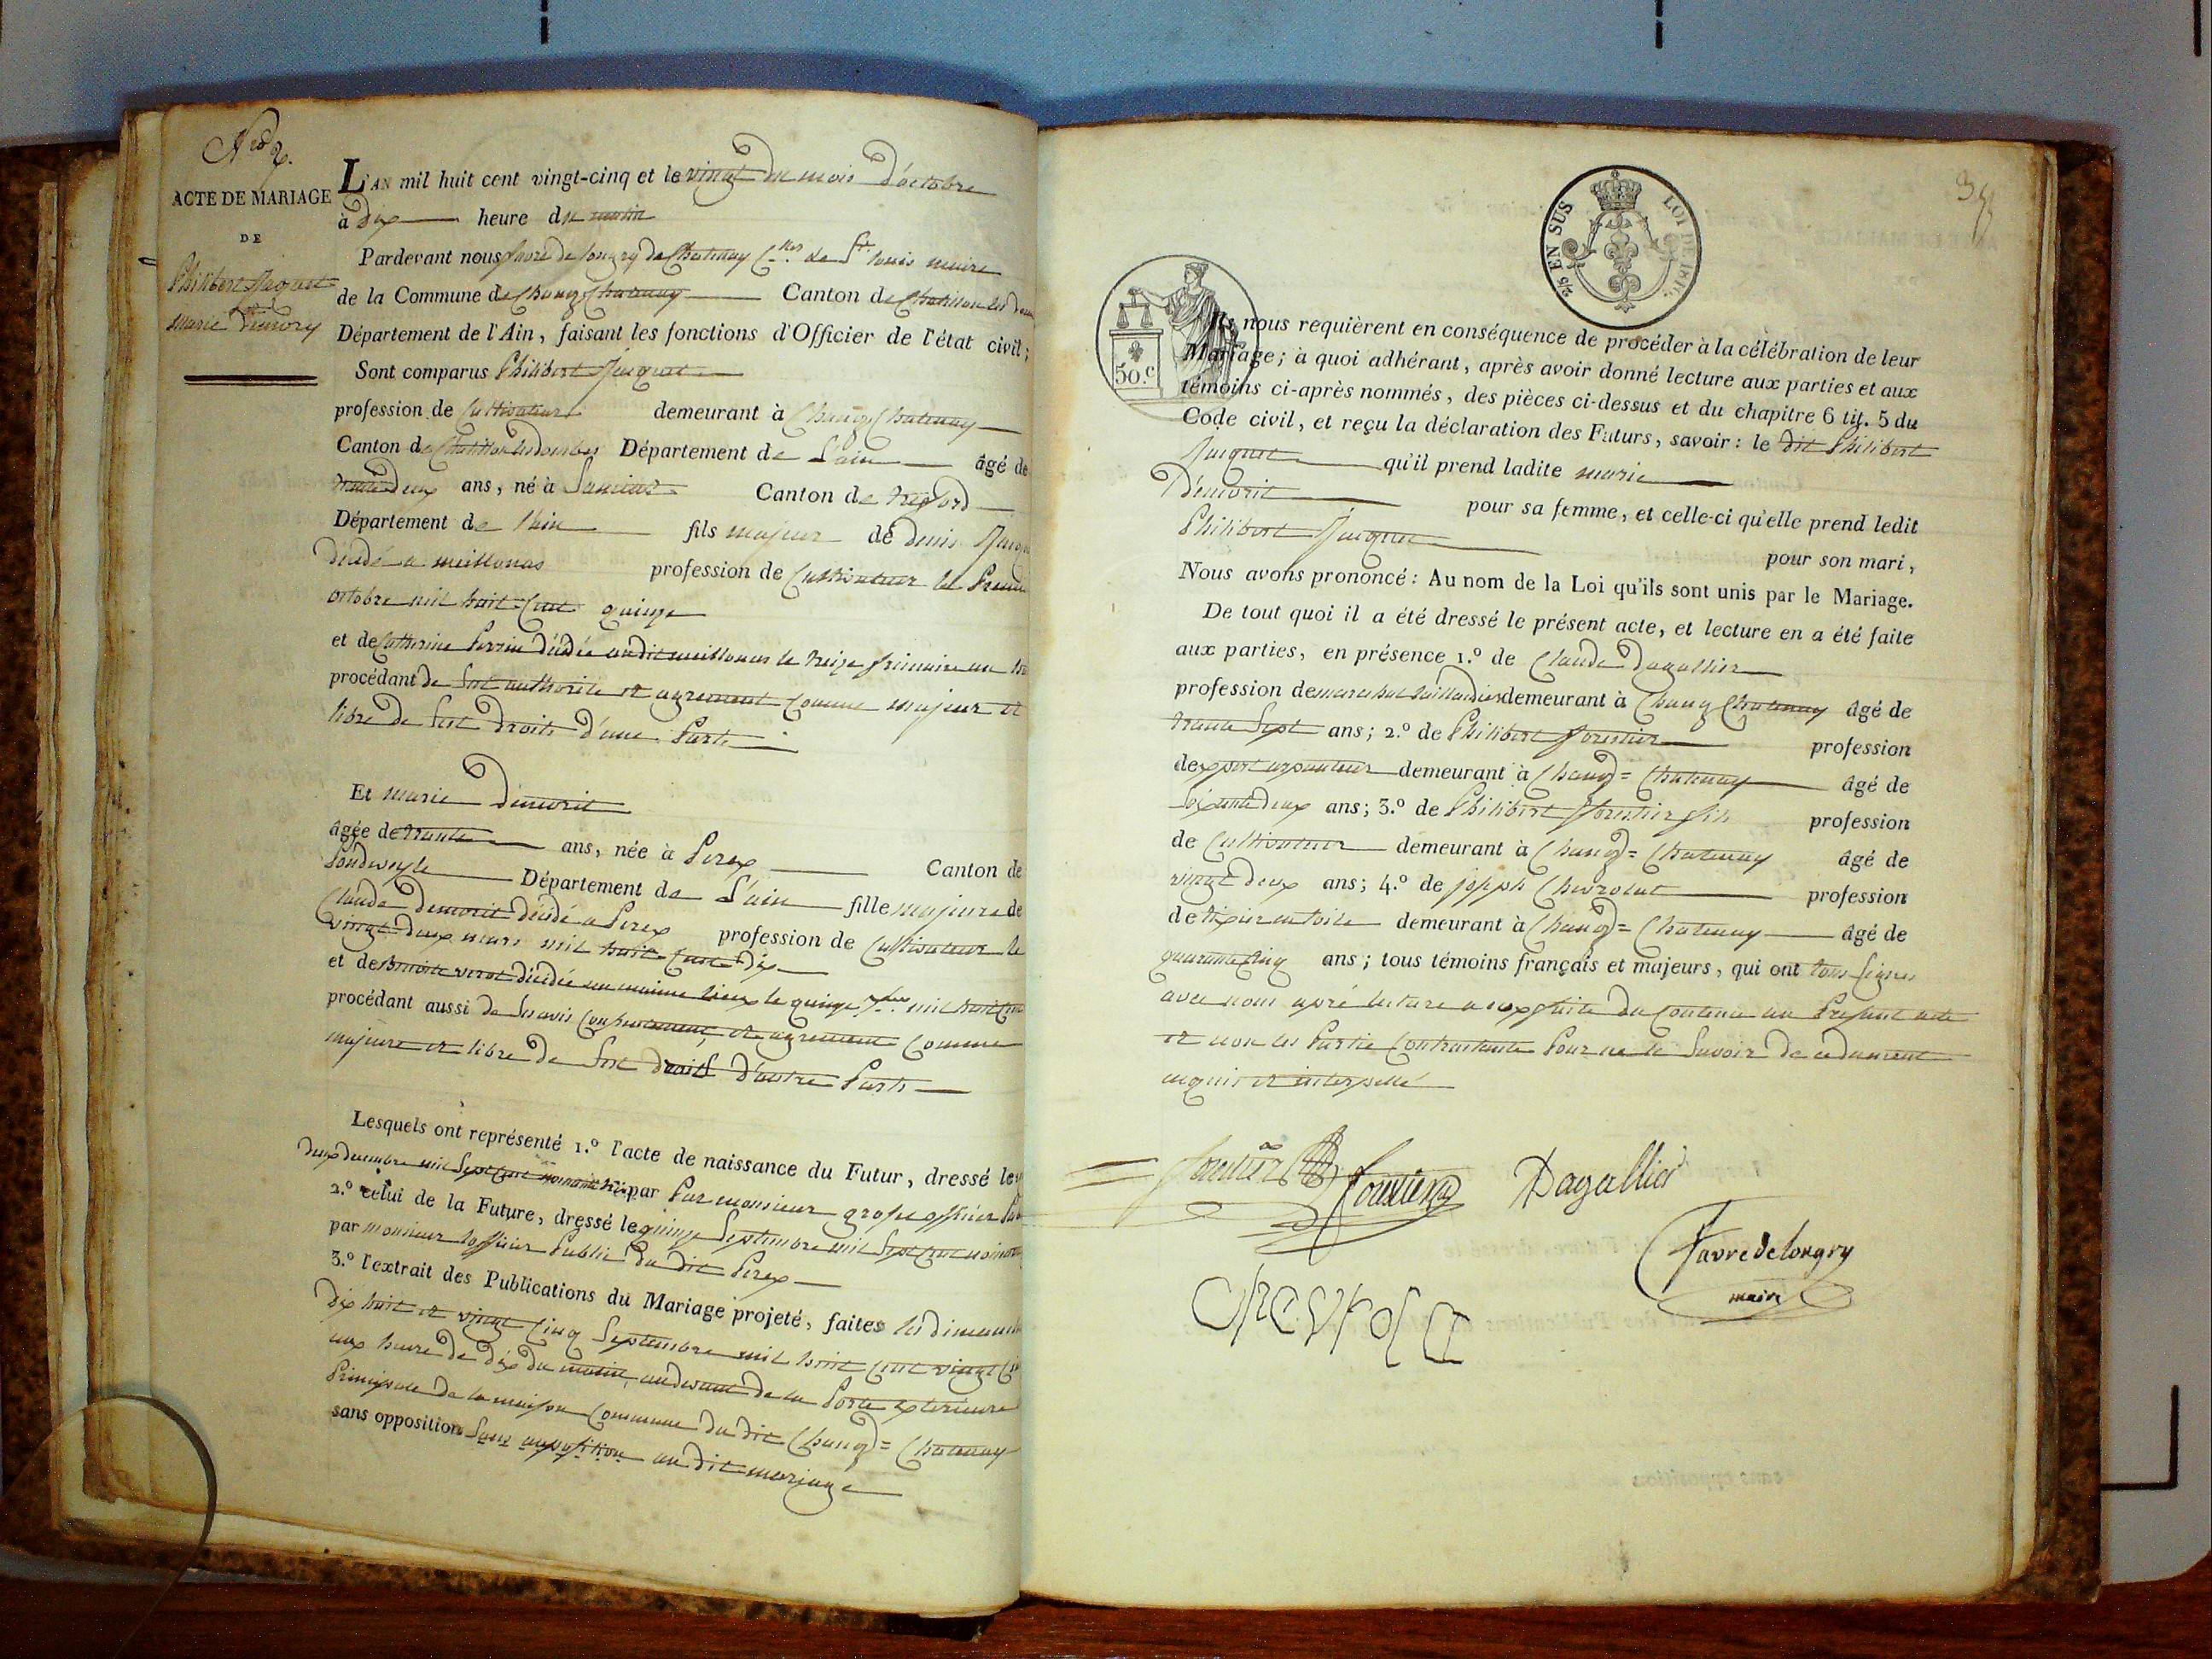 N.o 9.
ACTE DE MARIAGE
DE
Philibert Jacquet
et
marie Démory
L'AN mil huit cent vingt-cinq et le vingt du mois d'octobre
à dix heure du matin
Pardevant nous favre de longry de Chatenay de St. louis maire
de la Commune de Chanoz Chatenay Canton de Chatillon les
Département de l'Ain, faisant les fonctions d'Officier de l'état civil;
Sont comparus Philibert Jacquet
profession de Cultivateur demeurant à Chanoz Chatenay
Canton de Chatillon les dombes Département de L'ain âgé de
trente deux ans, né à Canton de trefford
Département de l'ain fils majeur de denis
décédé a meillonas profession de Cultivateur le
octobre mil huit Cent quinze
et de Catherine Perrin décédée audit meillonas le treize frimaire an
procédant de Sest authorité et agrement Comme majeur et
libre de Sest droits d'une Parts
Et marie Démorit
âgée de trante ans, née à Perex Canton de
Pondeveyle Département de L'ain fille majeure de
Claude demorit décédé a Perex profession de Cultivateur le
vingt deux mars mil huit Cent dix
et de Benoite verot décédée au même lieux le quinze mil huit Cent
procédant aussi de Sest avis Consentement, et agrement Comme
majeure et libre de Sest droits d'autre Parts
Lesquels ont représenté 1.º l'acte de naissance du Futur, dressé le
deux decembre mil Sept Cent par Par monsieur officier
2.º celui de la Future, dressé le quinze Septembre mil Sept Cent
par monsieur lofficier Public du dit Perex
3.º l'extrait des Publications du Mariage projeté, faites les
dix huit et vingt Cinq Septembre mil huit Cent vingt
aux heure de dix du matin, audevant de la Porte exterieure
Principale de la maison Commune du dit Chanoz = Chatenay
sans opposition Sans opposition au dit mariage
2/5 EN SUS
LOI DE 1816.
50.c
Ils nous requièrent en conséquence de procéder à la célébration de leur
Mariage; à quoi adhérant, après avoir donné lecture aux parties et aux
témoins ci-après nommés, des pièces ci-dessus et du chapitre 6 tit. 5 du
Code civil, et reçu la déclaration des Futurs, savoir: le dit Philibert
Jacquet qu'il prend ladite marie
Démorit pour sa femme, et celle-ci qu'elle prend ledit
Philibert Jacquet pour son mari,
Nous avons prononcé: Au nom de la Loi qu'ils sont unis par le Mariage.
De tout quoi il a été dressé le présent acte, et lecture en a été faite
aux parties, en présence 1.º de Claude Dagallier
profession de marechal taillandier demeurant à Chanoz Chatenay âgé de
trante Sept ans; 2.º de Philibert forestier profession
dexpert arpanteur demeurant à Chanoz = Chatenay âgé de
Soixante deux ans; 3.º de Philibert forestier fils profession
de Cultivateur demeurant à Chanoz = Chatenay âgé de
vingt deux ans; 4.º de joseph Chevrolat profession
de tixier en toile demeurant à Chanoz = Chatenay âgé de
quarante Cinq ans; tous témoins français et majeurs, qui ont tous Signés
avec nous apré lecture a eux faite du Contenu au Present acte
et non les Partie Contractante Pour ne le Savoir de ce dument
requis et interpellé
forestier Dagallier
Favre de longry
maire